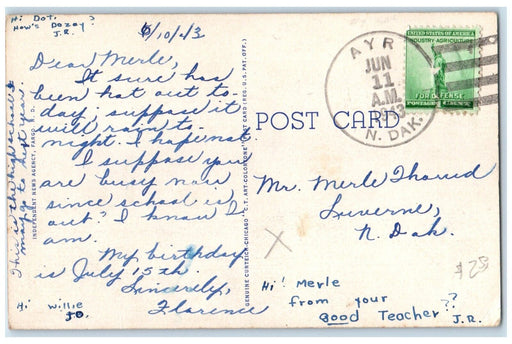 Hi Dot. ?
How's Dozay?
J.R.
6/10/43
Dear Merle,
It sure has
been hot out to-
day, suppose it
will rain to-
night. I hope not.
I suppose you
are busy now
since school is
out? I know I
am.
My birthday
is July 15th.
Sincerely,
Florence
Hi Willie
JO.
This is the high school I
may go to next year.
INDEPENDENT NEWS AGENCY, FARGO, N. D.
GENUINE CURTEICH-CHICAGO "C.T. ART-COLORTONE" POST CARD (REG. U.S. PAT. OFF.)
POST CARD
AYR
JUN
11
A.M.
1943
N. DAK.
UNITED STATES OF AMERICA
INDUSTRY AGRICULTURE
FOR DEFENSE
POSTAGE
Mr. Merle
Luverne,
N. Dak.
X
Hi! Merle
from your
Good Teacher ??
J.R.